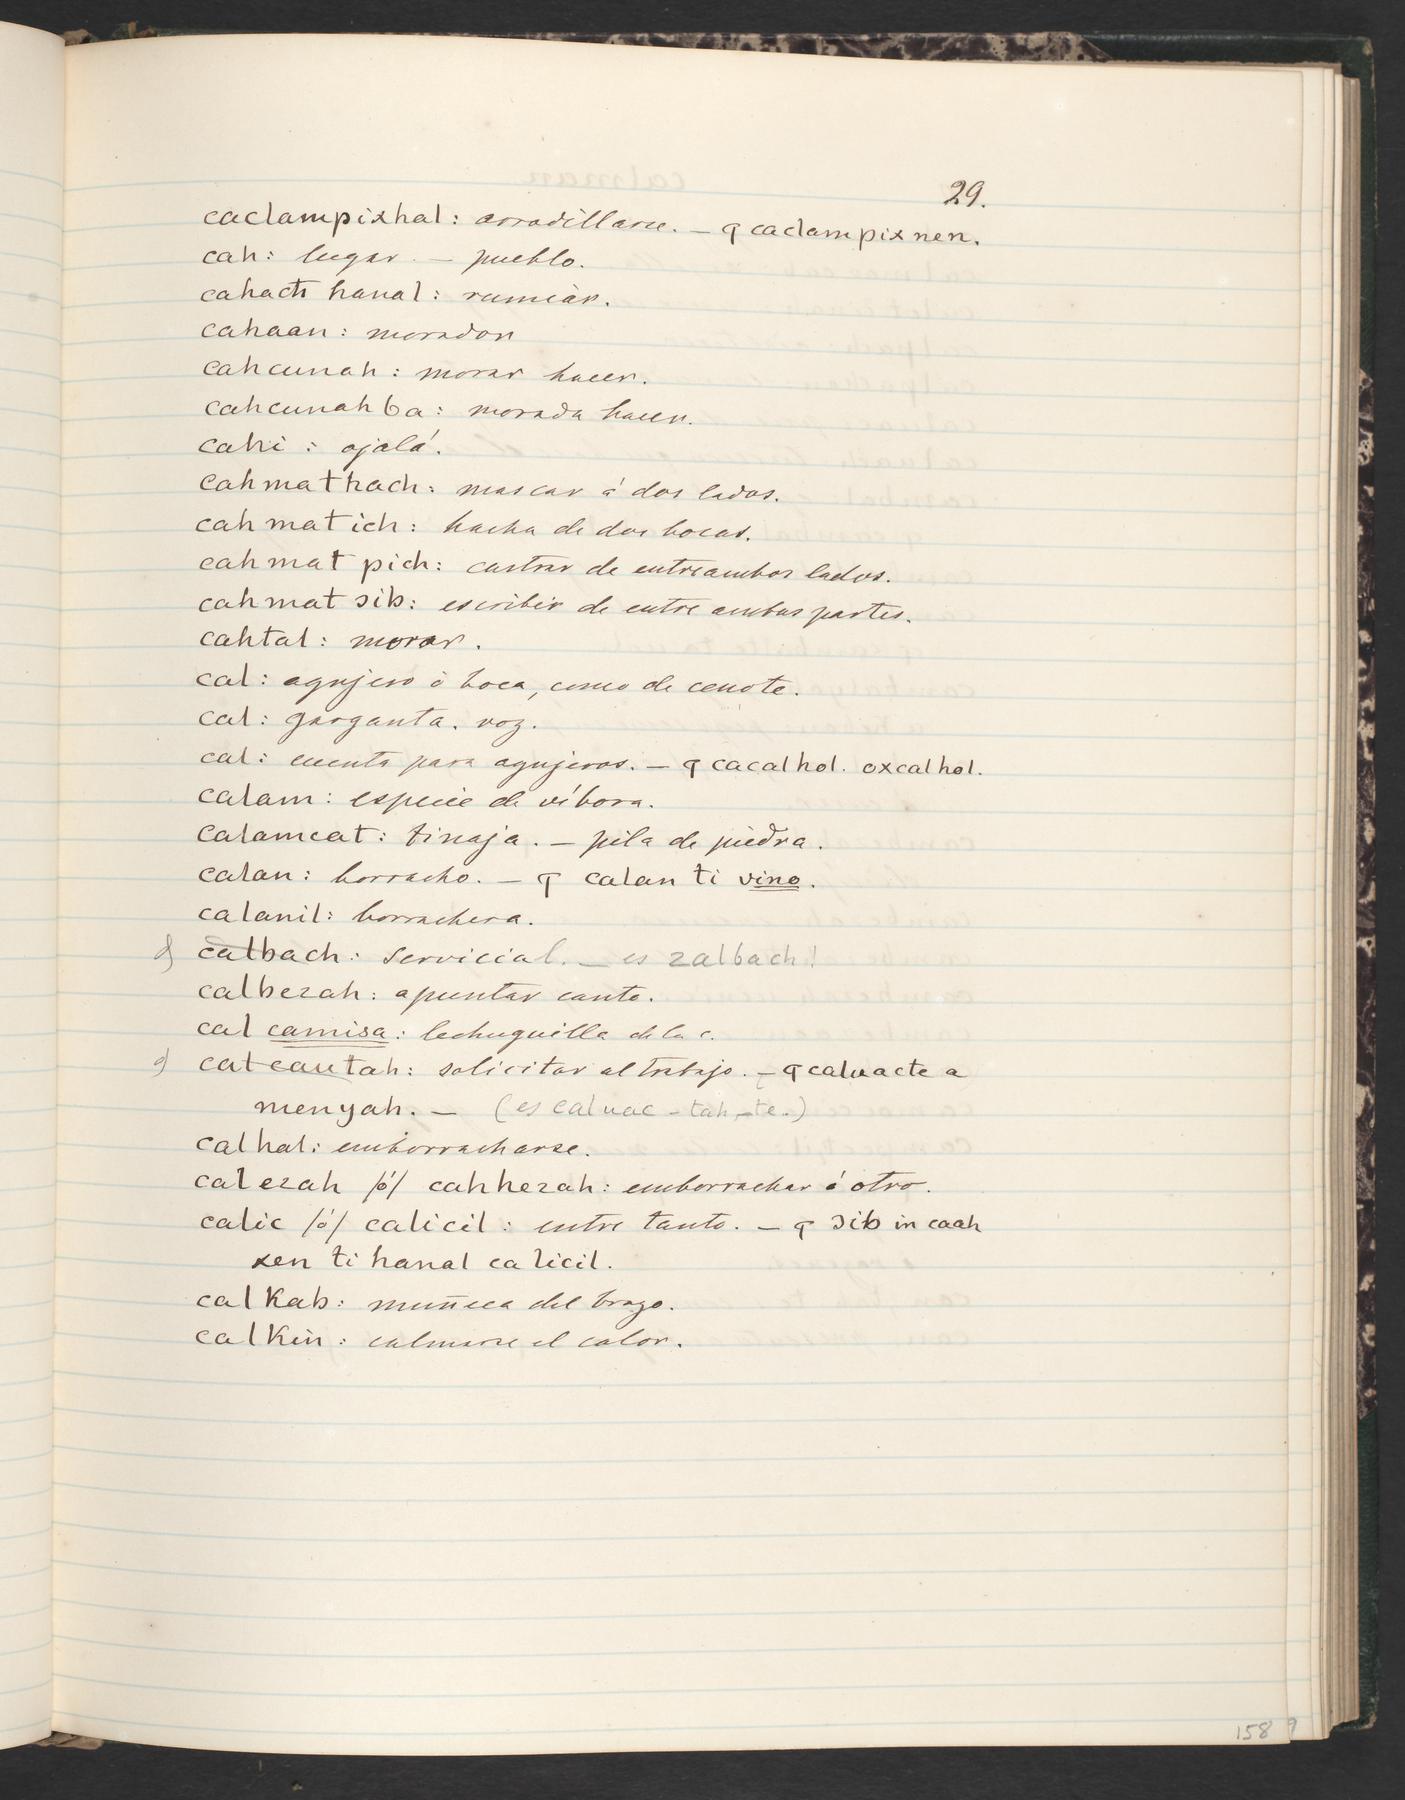 29.
caclampixhal: arrodillarse. — q caclampixnen.
cah: lugar. — pueblo.
cahach hanal: rumiar.
cahaan: morador
cahcunah: morar hacer.
cahcunahba: morada hacer.
cahi: ojalá.
cahmathach: mascar á dos lados.
cahmat ich: hacha de dos bocas.
cahmat pich: castrar de entreambos lados.
cahmat ɔib: escribir de entre ambas partes.
cahtal: morar.
cal: agujero ó boca, como de cenote.
cal: garganta. voz.
cal: cuenta para agujeros. — q cacalhol. oxcalhol.
calam: especie de víbora.
calamcat: tinaja. — pila de piedra.
calan: borracho. — q calan ti vino.
calanil: borrachera.
calbach: servicial. — es zalbach!
calbezah: apuntar canto.
cal camisa: lechuguilla de la c.
calcautah: solicitar al trabajo. — q caluacte a
menyah. — (es caluac-tah-te.)
calhal: emborracharse.
calezah /ó/ cahhezah: emborrachar á otro.
calic /ó/ calicil: entre tanto. — q ɔib in caah
xen ti hanal calicil.
cal Kab: muñeca del brazo.
cal Kin: calmarse el calor.
158